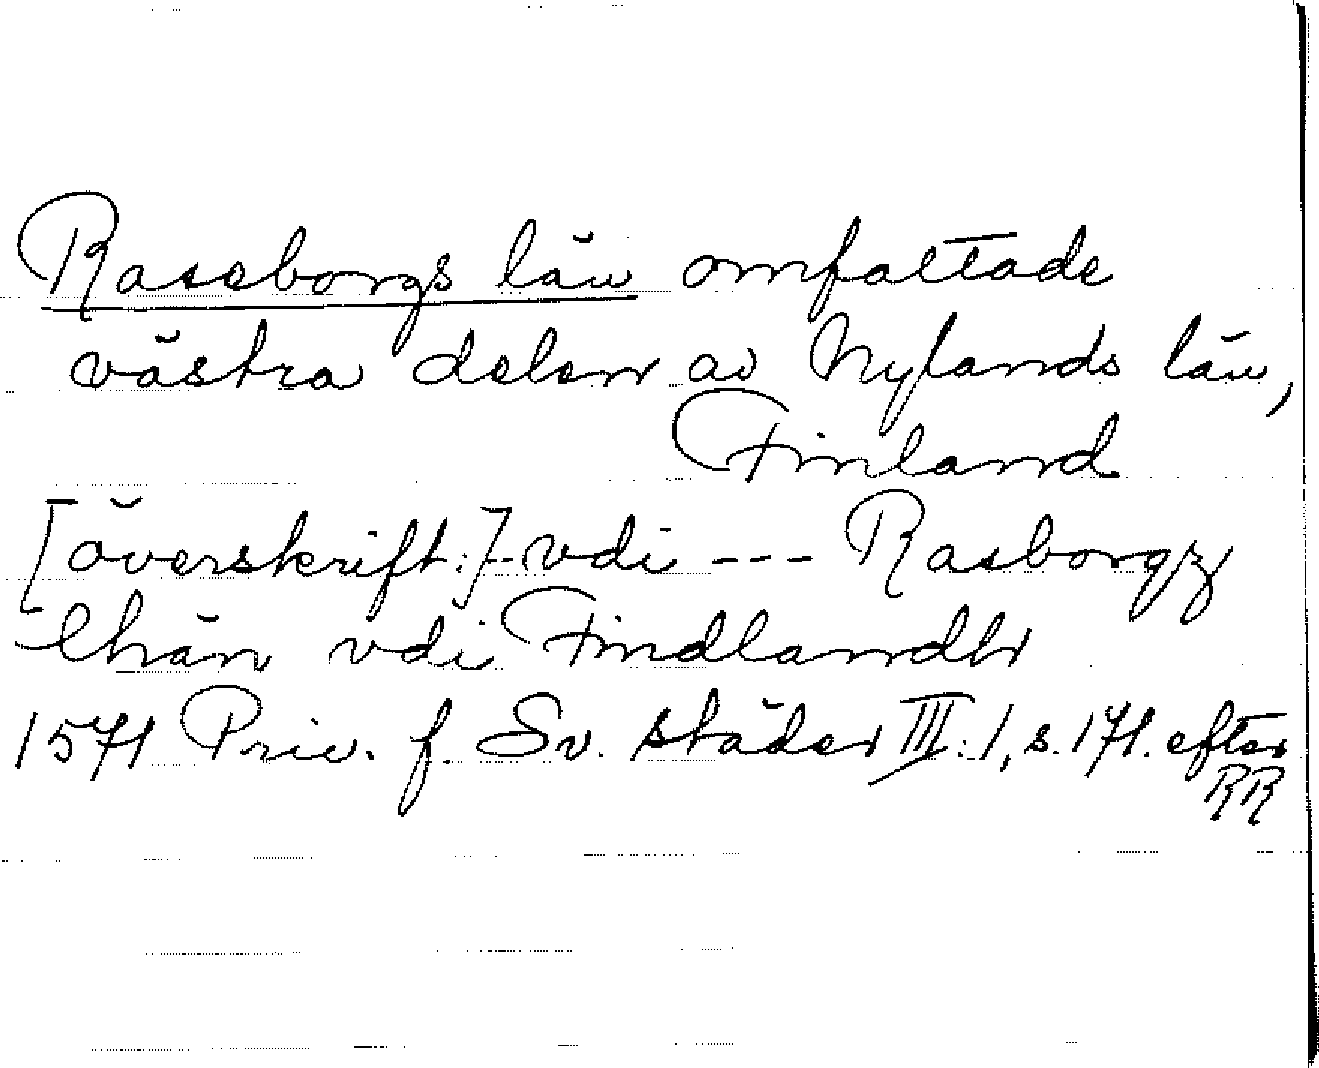 Raseborgs län omfattade
västra delen av Nylands län,
Finland
[överskrift:] vdi --- Rasborgz
lhän vdi Findlandh
1571 Priv. f. Sv. städer III:1, s. 171. efter
RR